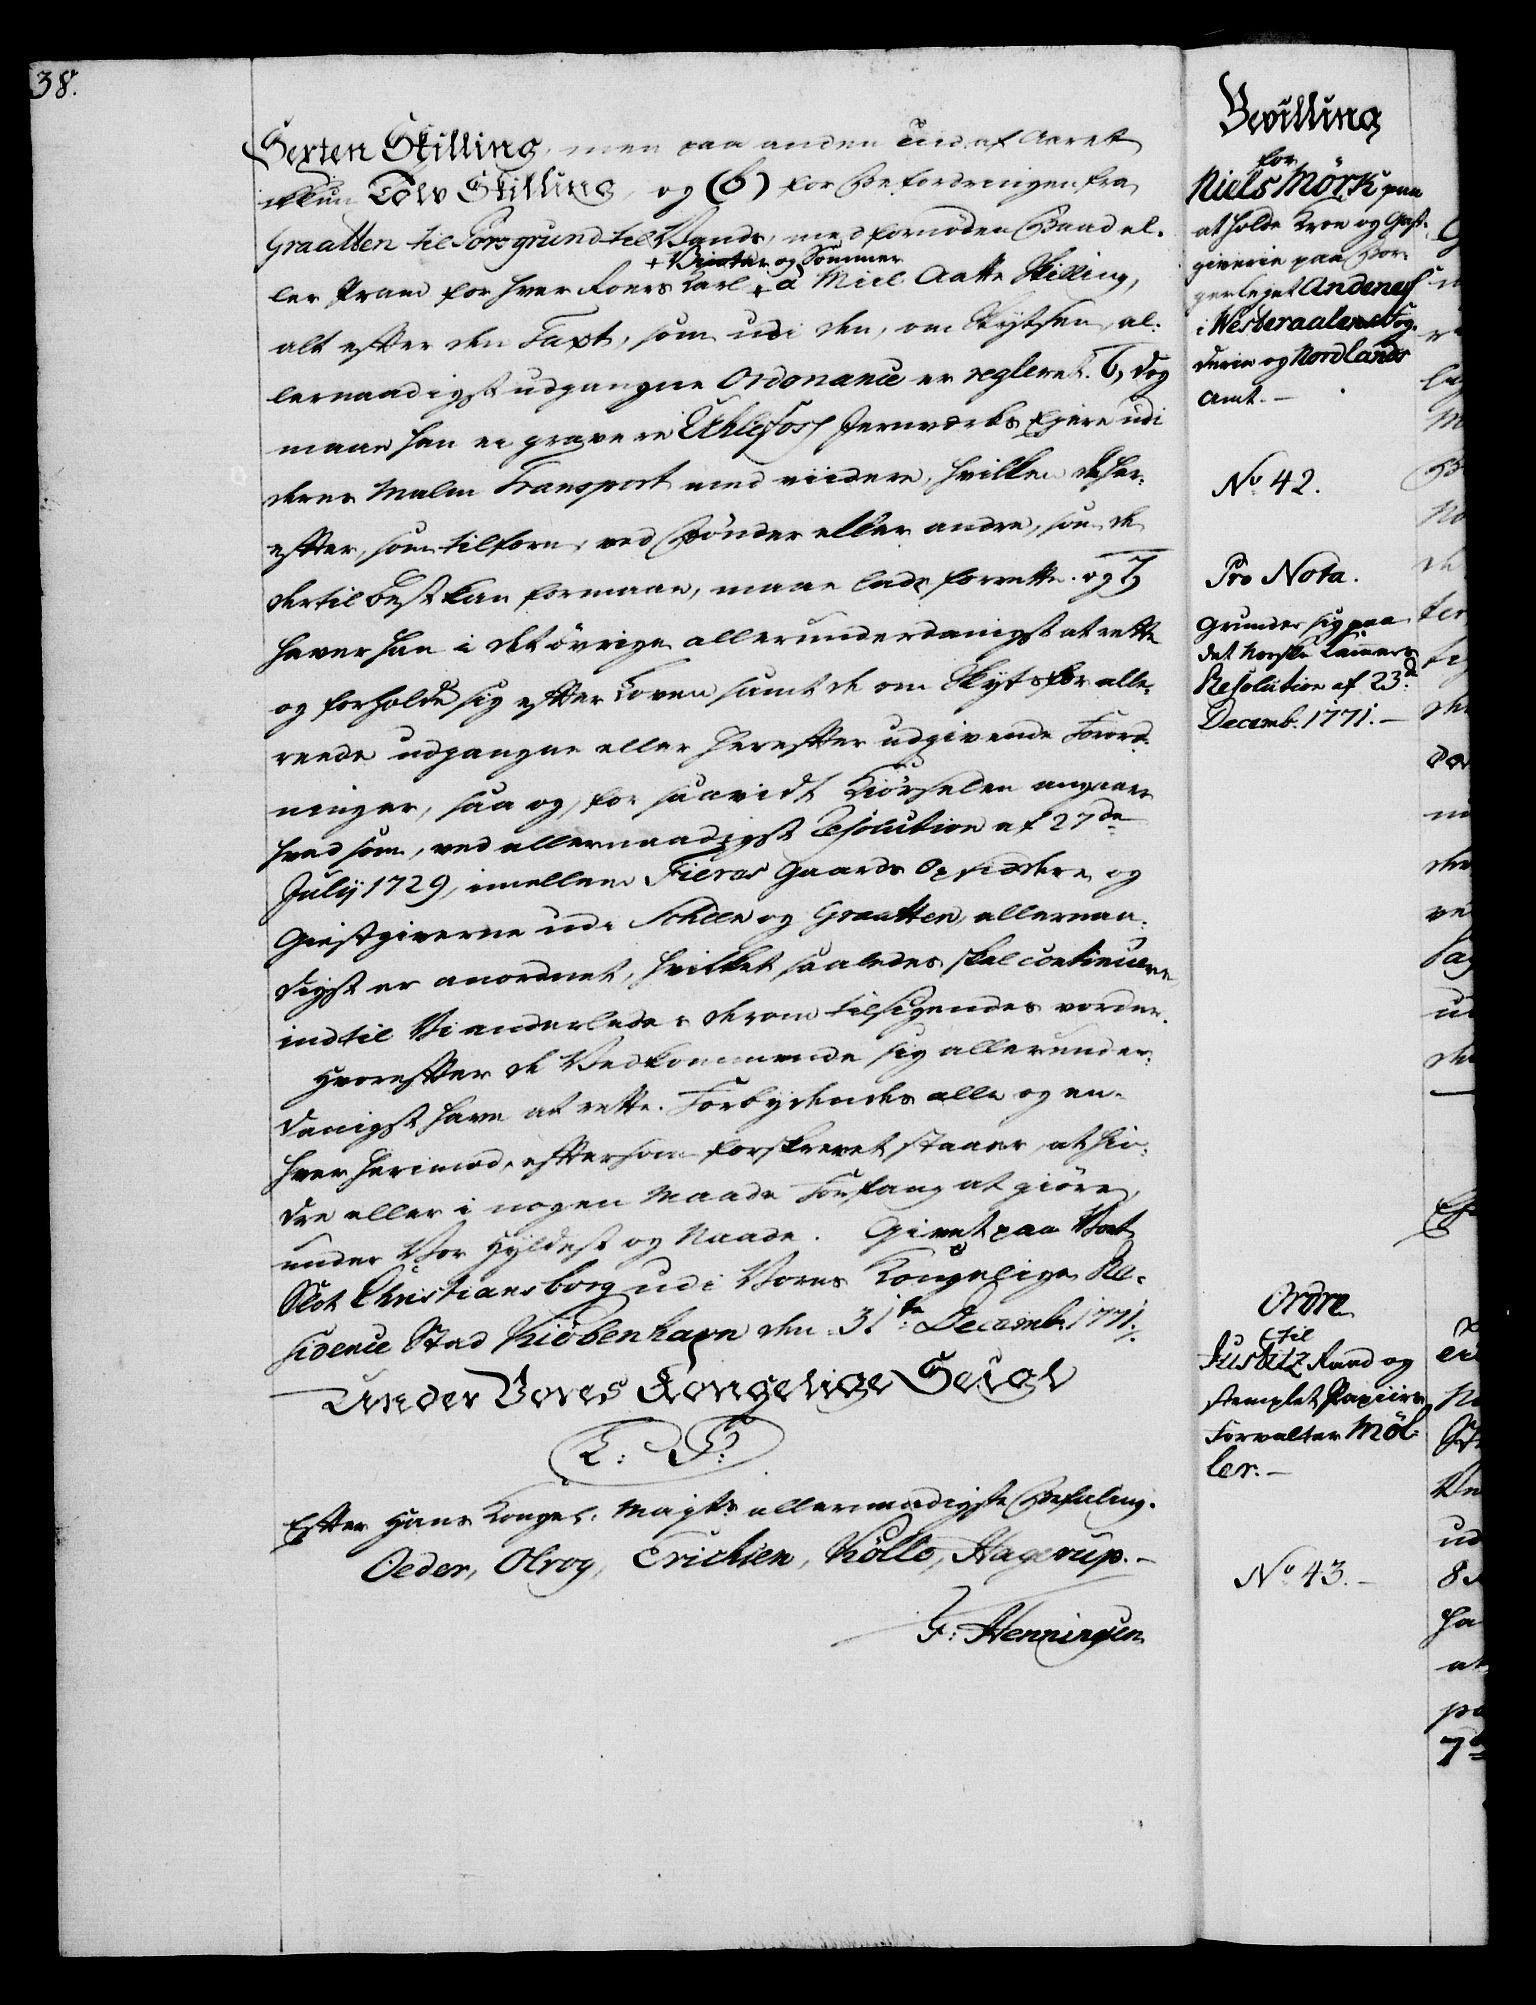 38.
Sexten Skilling, men paa anden Tid af Aaret
ikkun Tolv Skilling, og (b) for Befordringen fra
Graatten til Porsgrund til Vands, med fornøden Baad el-
+ Vinter og Sommer
ler Pram for hver Roers Karl + a Miil Aatte Skilling,
alt efter den Taxt, som udi den, om Skydsen, al-
lernaadigst udgangne Ordonance er regleret. 6, dog
maae han ei gravere Uhlefoss Jernverks Ejere udi
deres Malm Transport med viidere, hvilken de her-
efter, som tilforn, ved Bønder eller andre, som de
dertil best kan formaae, maae lade forrette. og 7,
haver han i det øvrige allerunderdanigst at rette
og forholde sig efter Loven samt de om Skyds for alle-
reede udgangne eller herefter udgivende Forord-
ninger, saa og, for saavidt Kiörselen angaaer
hvad som, ved allernaadigst Resolution af 27de
July 1729, imellem Fieras Gaards Opsiddere og
Giestgiverne udi Scheen og Graatten, allernaa-
digst er anordnet, hvilket saaledes skal continuere
indtil Vi anderledes derom tilsigendes vorder.
Hvorefter de Vedkommende sig allerunder-
danigst have at rette. Forbydendes alle og en-
hver herimod, eftersom forskrevet staaer, at hin-
dre eller i nogen Maade Forfang at giöre,
under Vor Hyldest og Naade. Givet paa Vort
Slot Christiansborg udi Vores Kongelige Re-
sidence Stad Kiöbenhavn den 31te Decemb. 1771.
Under Vores Kongelige Seigl
L: S:
Efter Hans Kongel: Mayts allernaadigste Befaling.
Oeder, Olrog, Erichsen, Kölle, Hagerup.-
F: Henningsen
Bevilling
for
Niels Mörk paa
at holde Kroe og Giest-
giverie paa Bor-
gerleyet Andenes
i Westeraalens Fog-
derie og Nordlands
Amt. -
No 42.
Pro Nota.
Grunder sig paa
det Norske Kamers
Resolution af 23de
Decemb. 1771. -
Ordre
til
Justitz Raad og
stemplet Papiirs
Forvalter Möl-
ler. -
No 43. -